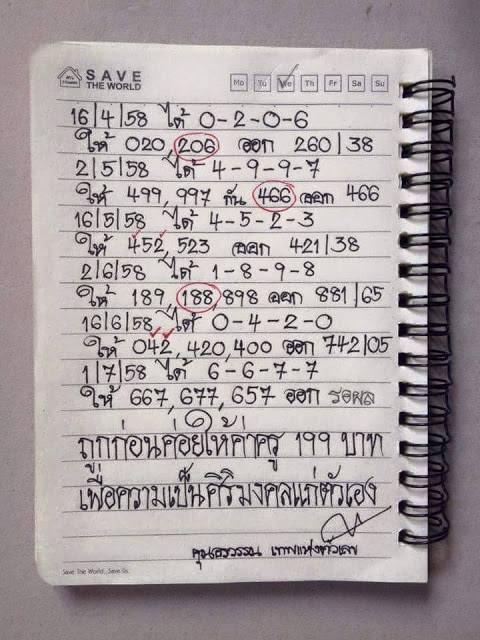 SAVE
THE WORLD
Mo Tu We Th Fr Sa Su
16/4/58 ได้ 0-2-0-6
ให้ 020, 206 ออก 260/38
2/5/58 ได้ 4-9-9-7
ให้ 499, 997 กัน 466 ออก 466
16/5/58 ได้ 4-5-2-3
ให้ 452, 523 ออก 421/38
2/6/58 ได้ 1-8-9-8
ให้ 189, 188, 898 ออก 881/65
16/6/58 ได้ 0-4-2-0
ให้ 042, 420, 400 ออก 742/05
1/7/58 ได้ 6-6-7-7
ให้ 667, 677, 657 ออก รอผล
ถูกก่อนค่อยให้ค่าครู 199 บาท
เพื่อความเป็นศิริมงคลแก่ตัวเอง
เทพแห่งตัวเลข
Save The World. Save Us.